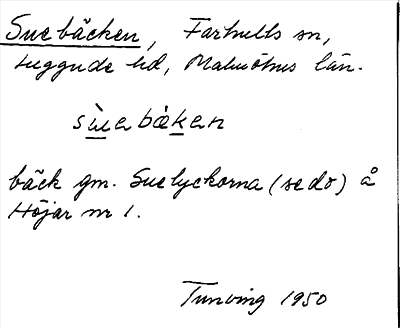 Suebäcken, Farhults sn,
Luggude hd, Malmöhus län.
sùebä̀ken
bäck gm. Suelyckorna (se do) å
Höjar nr 1.
Tunving 1950